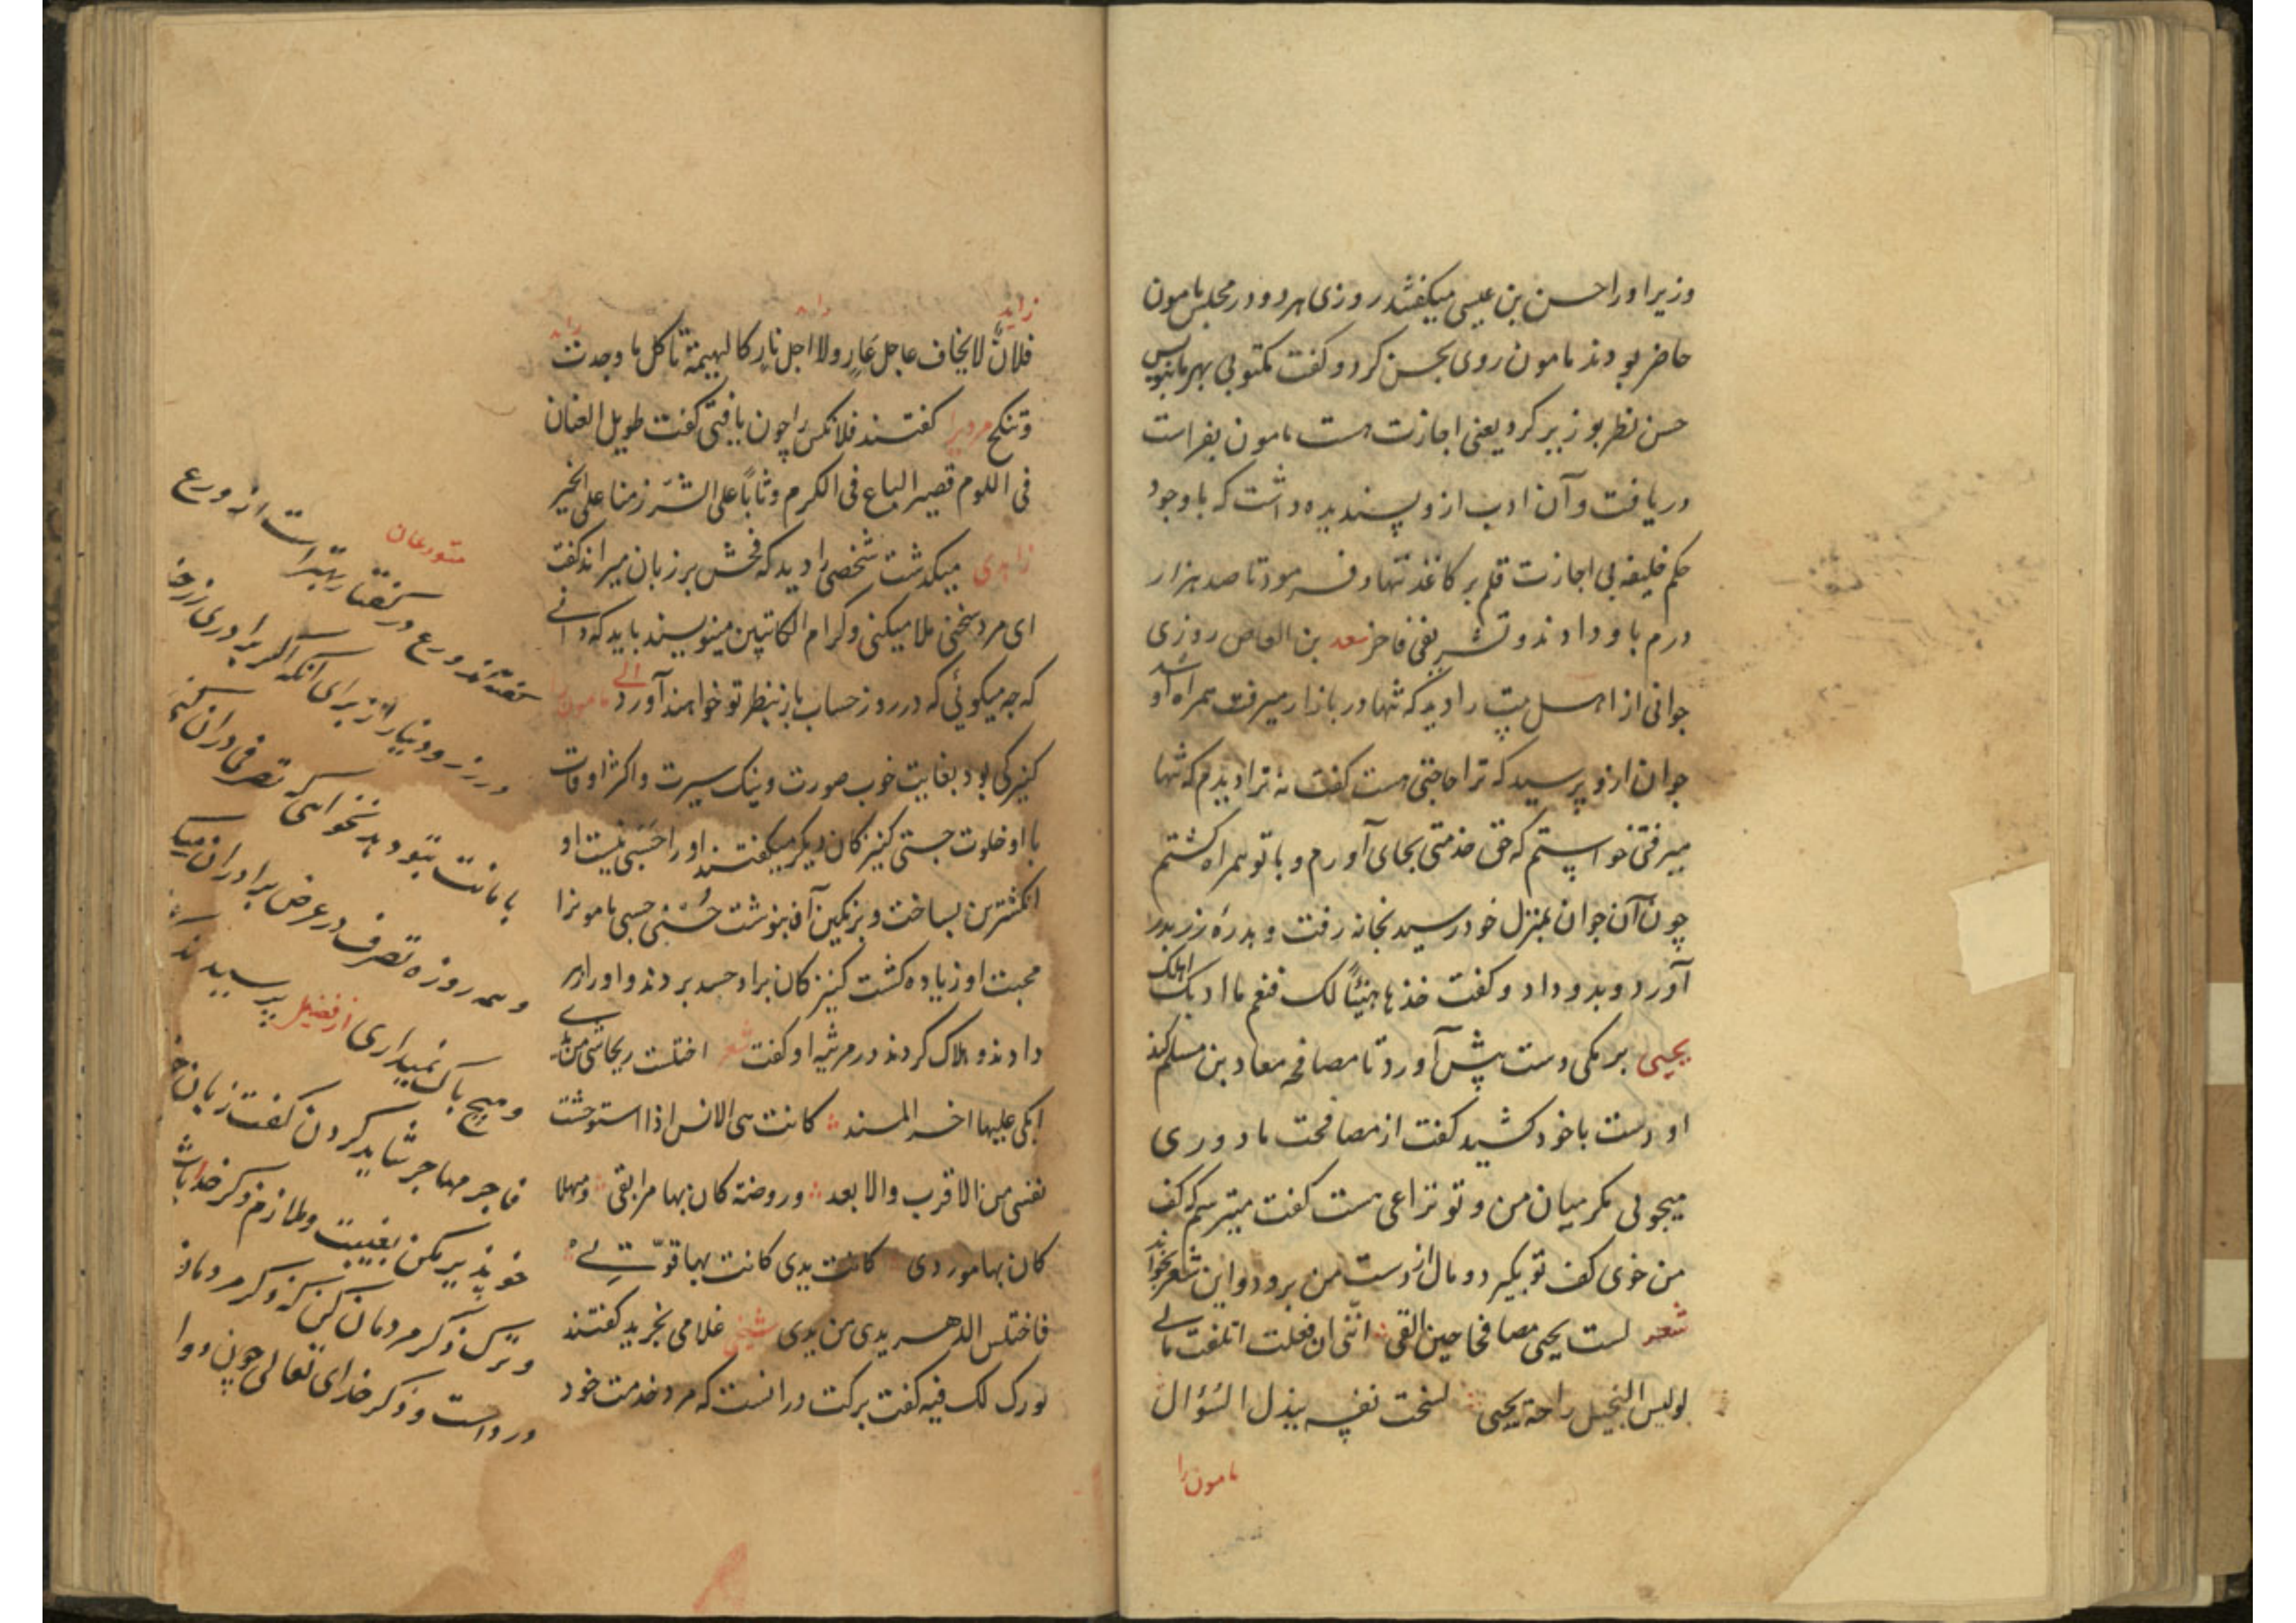 وزیر او را حسن بن عیسی میکفتند روزی هر دو در مجلس مامون
حاضر بودند مامون روی بحسن کرد و کفت مکتوبی بهر ما بنویس
حسن نظر بوزیر کرد یعنی اجازت هست مامون بفراست
دریافت و آن ادب ازو پسندیده داشت که با وجود
حکم خلیفه بی اجازت قلم بر کاغذ ننهاد و فرمود تا صد هزار
درم باو دادند و تشریفی فاخر سعد بن العاص روزی
جوانی از اهل بیت را دید که تنها در بازار میرفت همراه او شد
جوان ازو پرسید که ترا حاجتی هست کفت نه ترا دیدم که تنها
میرفتی خواستم که حق خدمتی بجای آورم و با تو همراه کشتم
چون آن جوان بمنزل خود رسید بخانه رفت و بدره زر بدر
آورد و بدو داد و کفت خذها هنیئاً لک فنعم ما ادبک اهلک
یحیی برمکی دست پیش آورد تا مصافحه معاد بن مسلم کند
او دست با خود کشید کفت از مصافحت ما دوری
میجویی مکر میان من و تو نزاعی هست کفت میترسم که کف
من خوی کف تو بگیرد و مال از دست من برود و این شعر بخواند
شعر لست یحیی مصافحا حین القی اننی ان فعلت اتلفت مالی
لو لیس البخیل راحة یحیی لسخت نفسه ببذل السؤال
مامون را
زاید
زاید
زاید
فلانٌ لا یخاف عاجل عَارٍ ولا اجل نارٍ کالبهیمة تاکل ما وجدت
وتنکح مردیرا کفتند فلانکس را چون یافتی کفت طویل العنان
فی اللوم قصیر الباع فی الکرم وثاباً علی الشر زمنا علی الخیر
زاهدی میکذشت شخصی را دید که فحش بر زبان میراند کفت
ای مرد سخنی ملا میکنی و کرام الکاتبین مینویسند باید که دانی
که چه میکوئی که در روز حساب باز بنظر تو خواهند آورد مامون را
کنیزکی بود بغایت خوب صورت و نیک سیرت و اکثر اوقات
با او خلوت جستی کنیزکان دیکر میکفتند او را حَسَبی نیست او
انکشترین بساخت و بر نکین آن بنوشت حُسْنی حسبی مامونرا
محبت او زیاده کشت کنیزکان براو حسد بردند و او را زهر
دادند و هلاک کردند در مرثیه او کفت شعر اختلست ریحانتی من یدی
ابکی علیها اخر المسند کانت هی الانس اذا استوحشت
نفسی من الاقرب والابعد وروضة کان بها مرابقی ومنهلا
کان بها موردی کانت یدی کانت بها قوّتی
فاختلس الدهر یدی من یدی شیخی غلامی بخرید کفتند
بورک لک فیه کفت برکت درانست که مرد خدمت خود
متورعان
کفته‌اند ورع در کفتار بهتر است از ورع
در زر و دینار از برای آنکه اکر برادری زر خود
بامانت بتو دهد نخواهی که تصرفی دران کنی
و همه روزه تصرف در عرض برادران میکنی
و هیچ باک نمیداری از فضیل پرسیدند که
فاجر مهاجر شاید کردن کفت زبان خود
خو پذیر مکن بغیبت و ملازم ذکر خدا باش
و ترک ذکر مردمان کن که ذکر مردمان
درد است و ذکر خدای تعالی چون دوا